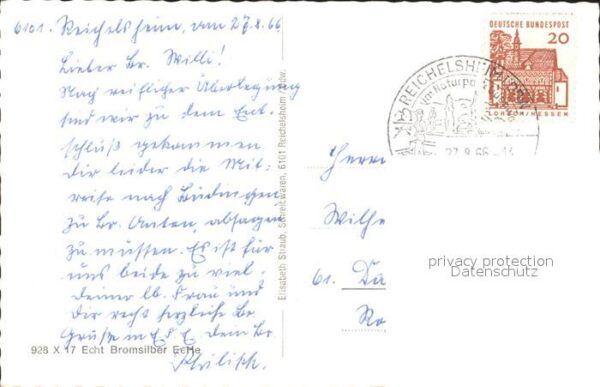 6101. Reichelsheim, am 27.8.66
Lieber Br. Willi!
Nach reiflicher Überlegung
sind wir zu dem Ent-
schluß gekommen
dir leider die Mit-
reise nach Büdingen
zu Br. Anton, absagen
zu müssen. Es ist für
uns beide zu viel.
deiner lb. Frau und
dir recht herzliche Br.
Grüße in dein Br.
Philipp.
928 X 17 Echt Bromsilber
Elisabeth Straub, Schreibwaren, 6101 Reichelsheim Odw.
DEUTSCHE BUNDESPOST
20
LORSCH/HESSEN
REICHELSHEIM (ODENW)
Im Naturpark
27.8.66
Herrn
Wilhe
61. Da
Ro
privacy protection
Datenschutz